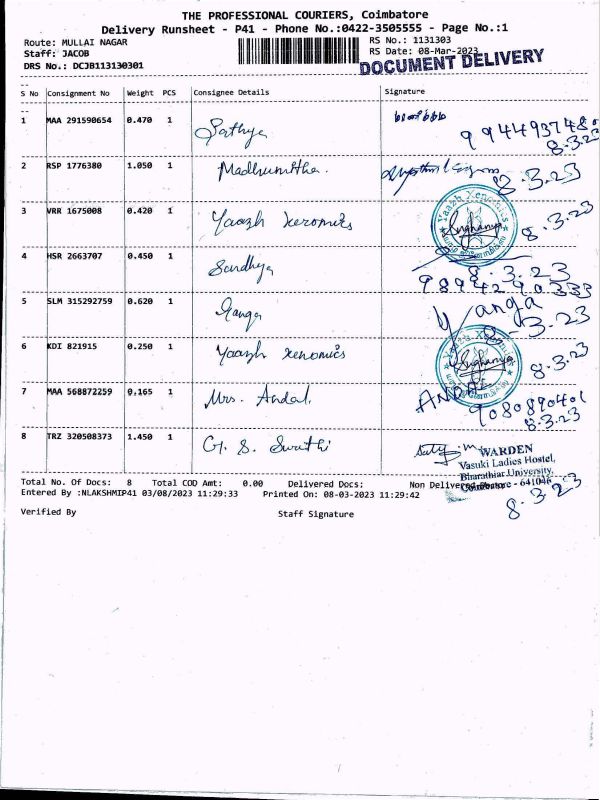 THE PROFESSIONAL COURIERS, Coimbatore
Delivery Runsheet - P41 - Phone No.:0422-3505555 - Page No.:1
Route: MULLAI NAGAR RS No.: 1131303
Staff: JACOB RS Date: 08-Mar-2023
DRS No.: DCJB113130301 DOCUMENT DELIVERY
S No Consignment No Weight PCS Consignee Details Signature
1 MAA 291590654 0.470 1 Sathya
8.3.23
2 RSP 1776380 1.050 1 Madhumitha. 8.3.23
3 VRR 1675008 0.420 1 Yaazh Xeromics Yaazh Xenomics Sughanya 8.3.23
4 HSR 2663707 0.450 1 Sandhya 8.3.23
9894290333
5 SLM 315292759 0.620 1 Ganga 8-3.23
6 KDI 821915 0.250 1 Yaazh Xenomics Yaazh Xenomics Sughanya 8.3.23
7 MAA 568872259 0.165 1 Mrs. Andal. ANDAL
9080890401
8.3.23
8 TRZ 320508373 1.450 1 G. S. Swathi
WARDEN
Vasuki Ladies Hostel,
Bharathiar University,
Coimbatore - 641046
8.3.23
Total No. Of Docs: 8 Total COD Amt: 0.00 Delivered Docs: Non Delivered Docs:
Entered By :NLAKSHMIP41 03/08/2023 11:29:33 Printed On: 08-03-2023 11:29:42
Verified By Staff Signature